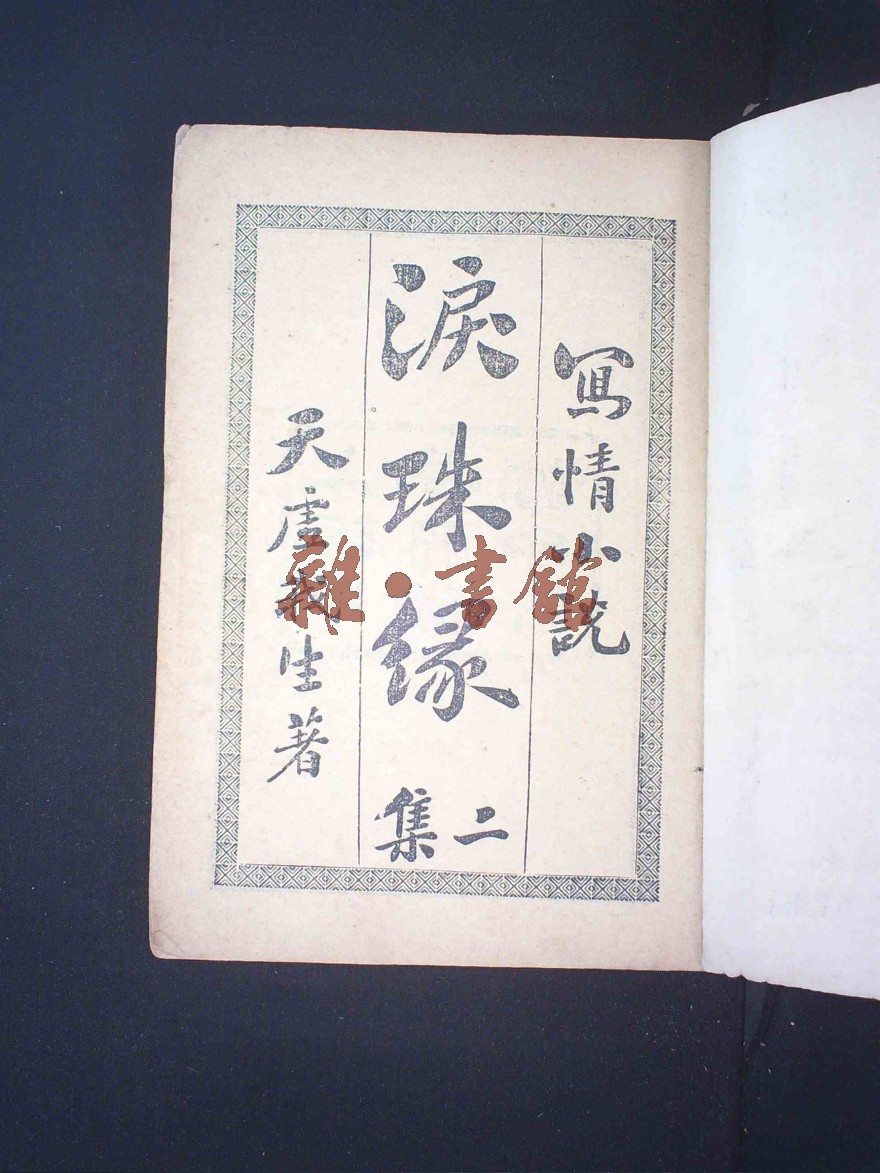 寫情小説
淚珠緣
二集
天虛我生著
雜·書館